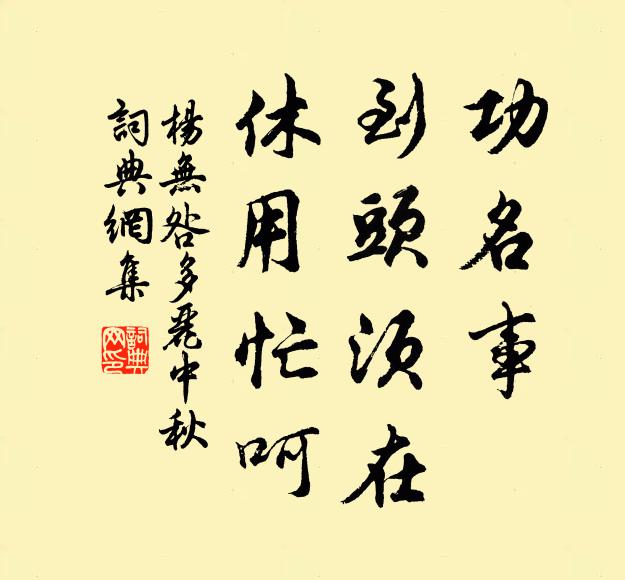 功名事
到頭須在
休用忙呵
楊無咎多麗中秋
詞典網集
詞典網印